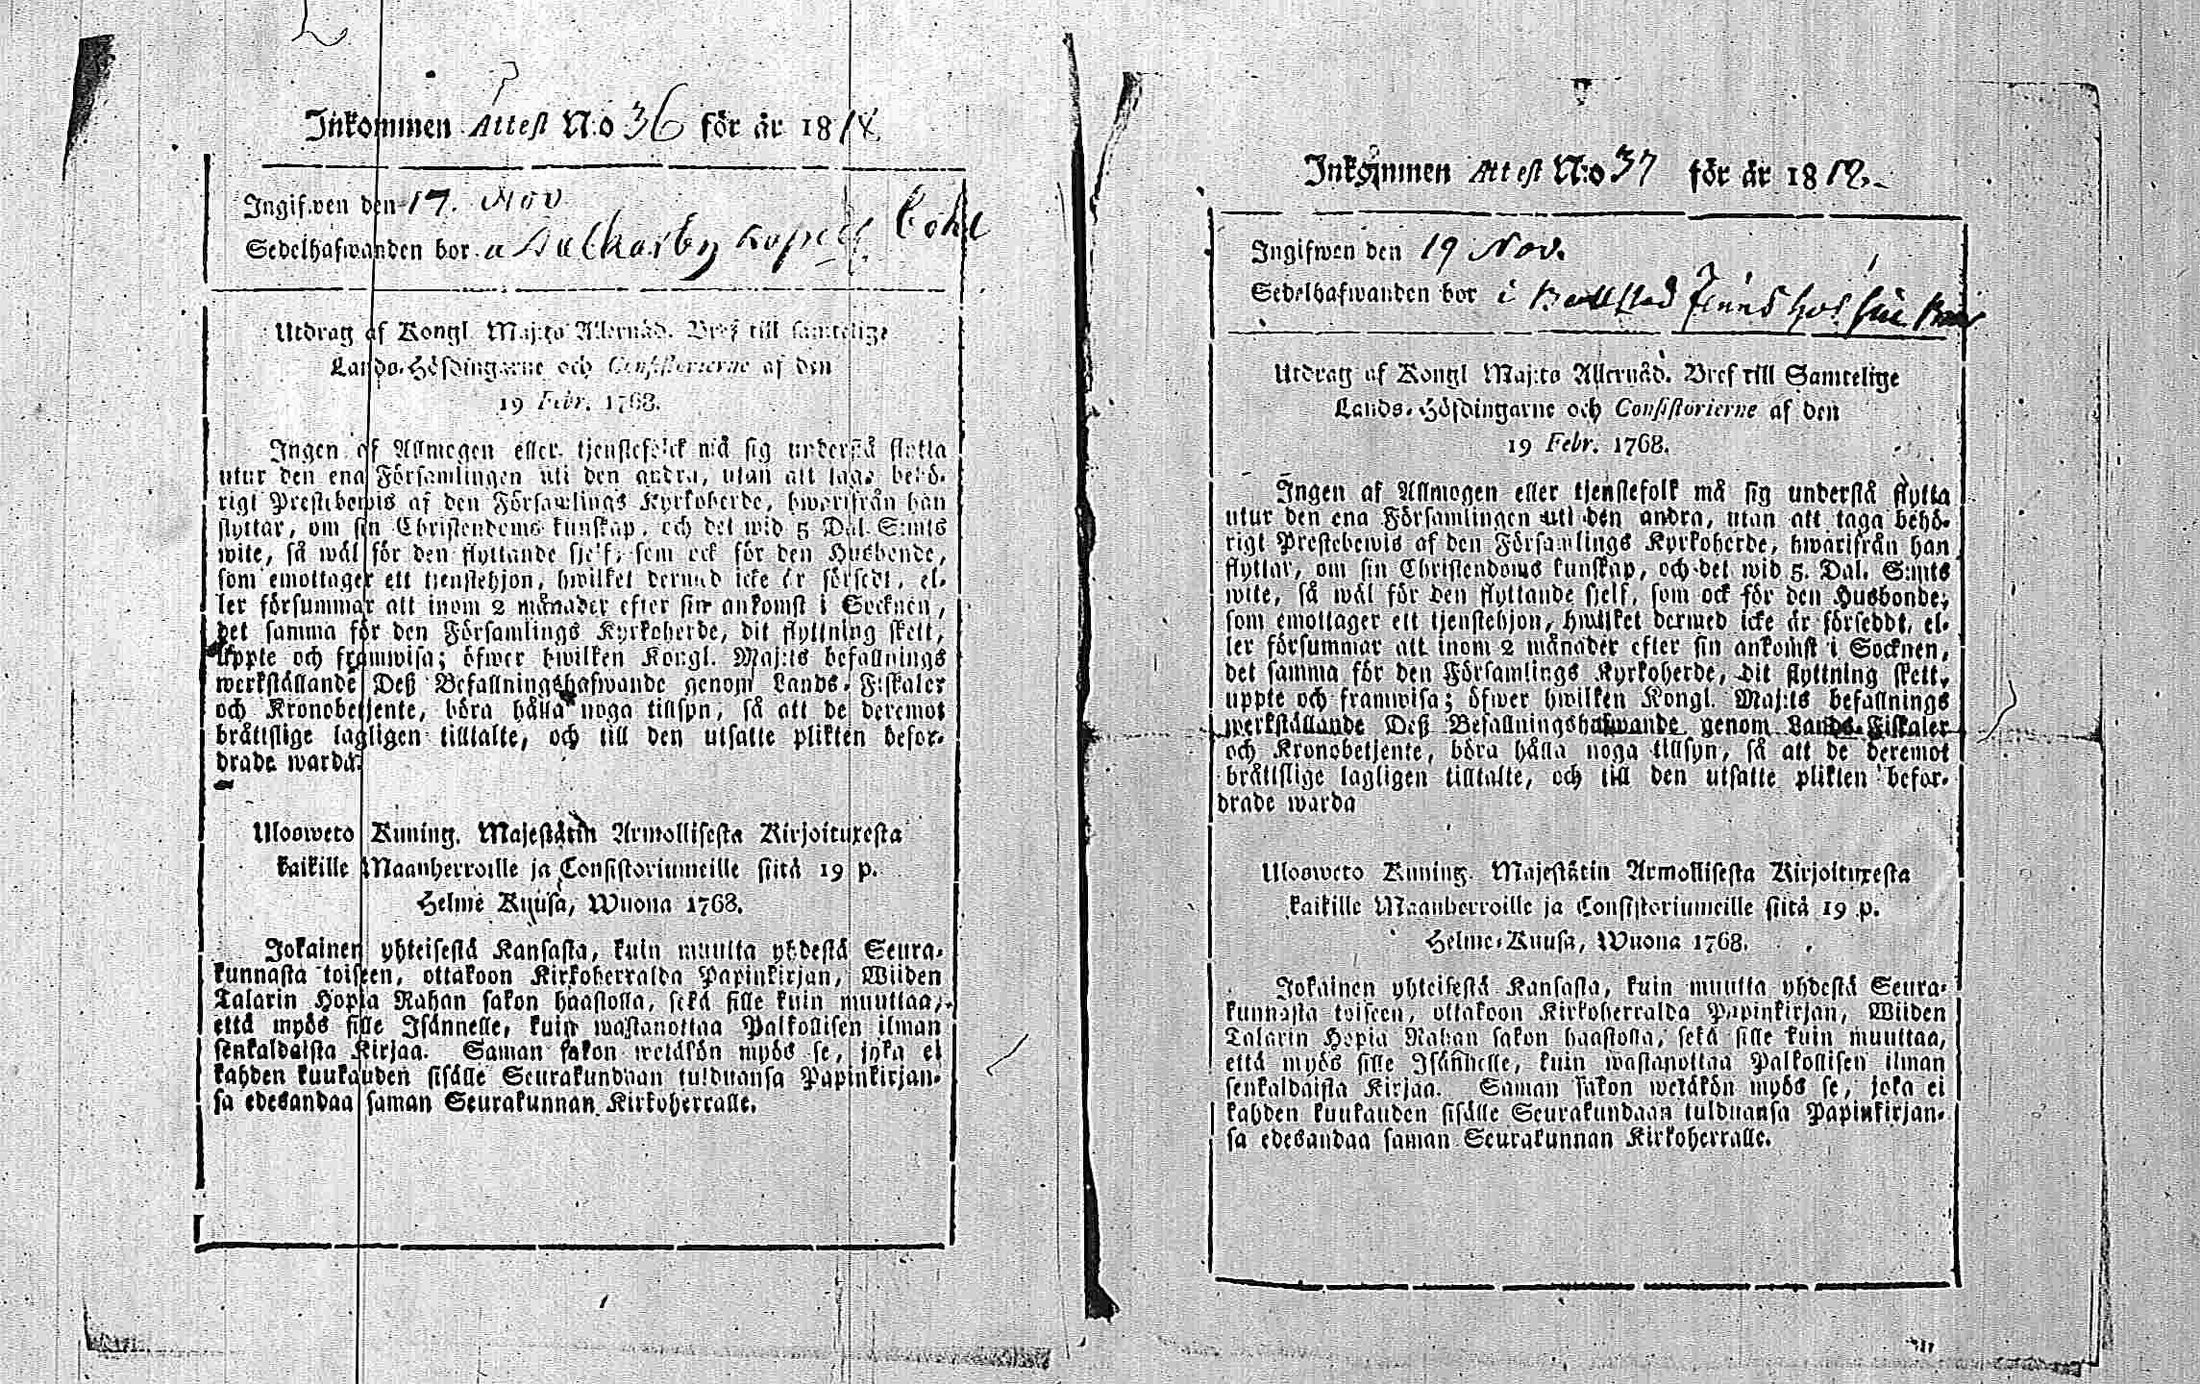 Inkommen Attest N:o 36 för år 18
Ingifwen den 17. Nov
Sedelhafwanden bor
Utdrag af Kongl Maj:ts Allernåd. Bref till samtelige
Lands-Höfdingarne och Consistorierne af den
19 Febr. 1768.
Ingen af Allmogen eller tjenstefolck må sig understå flytta
utur den ena Församlingen uti den andra, utan att taga behö-
rigt Prestebewis af den Församlings Kyrkoherde, hwarifrån han
flyttar, om sin Christendoms kunskap, och det wid 5 Dal. S:mts
wite, så wäl för den flyttande sjelf, som ock för den Husbonde,
som emottager ett tjenstehjon, hwilket dermed icke är försedt, el-
ler försummar att inom 2 månader efter sin ankomst i Socknen,
det samma för den Församlings Kyrkoherde, dit flyttning skett,
uppte och framwisa; öfwer hwilken Kongl. Maj:ts befallnings
werkställande Deß Befallningshafwande genom Lands-Fiskaler
och Kronobetjente, böra hålla noga tillsyn, så att de deremot
bråttslige lagligen tilltalte, och till den utsatte plikten befor-
drade warda.
Ulosweto Kuning. Majestätin Armollisesta Kirjoituxesta
kaikille Maanherroille ja Consistoriumeille siitä 19 p.
Helme Kuusa, Wuona 1768.
Jokainen yhteisestä Kansasta, kuin muutta yhdestä Seura-
kunnasta toiseen, ottakoon Kirkoherralda Papinkirjan, Wiiden
Talarin Hopia Rahan sakon haastolla, sekä sille kuin muuttaa,
että myös sille Isännelle, kuin wastanottaa Palkollisen ilman
senkaldaista Kirjaa. Saman sakon wetäkön myös se, joka ei
kahden kuukauden sisälle Seurakundaan tulduansa Papinkirjan-
sa edesandaa saman Seurakunnan Kirkoherralle.
Inkommen Attest N:o 37 för år 1812.
Ingifwen den 19 Nov.
Sedelhafwanden bor i
Utdrag af Kongl Maj:ts Allernåd. Bref till Samtelige
Lands-Höfdingarne och Consistorierne af den
19 Febr. 1768.
Ingen af Allmogen eller tjenstefolk må sig understå flytta
utur den ena Församlingen uti den andra, utan att taga behö-
rigt Prestebewis af den Församlings Kyrkoherde, hwarifrån han
flyttar, om sin Christendoms kunskap, och det wid 5. Dal. S:mts
wite, så wäl för den flyttande sjelf, som ock för den Husbonde,
som emottager ett tjenstehjon, hwilket dermed icke är förseddt, el-
ler försummar att inom 2 månader efter sin ankomst i Socknen,
det samma för den Församlings Kyrkoherde, dit flyttning skett,
uppte och framwisa; öfwer hwilken Kongl. Maj:ts befallnings
werkställande Deß Befallningshafwande genom Lands-Fiskaler
och Kronobetjente, böra hålla noga tillsyn, så att de deremot
bråttslige lagligen tilltalte, och till den utsatte plikten befor-
drade warda
Ulosweto Kuning. Majestätin Armollisesta Kirjoituxesta
kaikille Maanherroille ja Consistoriumeille siitä 19 p.
Helme-Kuusa, Wuona 1768.
Jokainen yhteisestä Kansasta, kuin muutta yhdestä Seura-
kunnasta toiseen, ottakoon Kirkoherralda Papinkirjan, Wiiden
Talarin Hopia Rahan sakon haastolla, sekä sille kuin muuttaa,
että myös sille Isännelle, kuin wastanottaa Palkollisen ilman
senkaldaista Kirjaa. Saman sakon wetäkön myös se, joka ei
kahden kuukauden sisälle Seurakundaan tulduansa Papinkirjan-
sa edesandaa saman Seurakunnan Kirkoherralle.